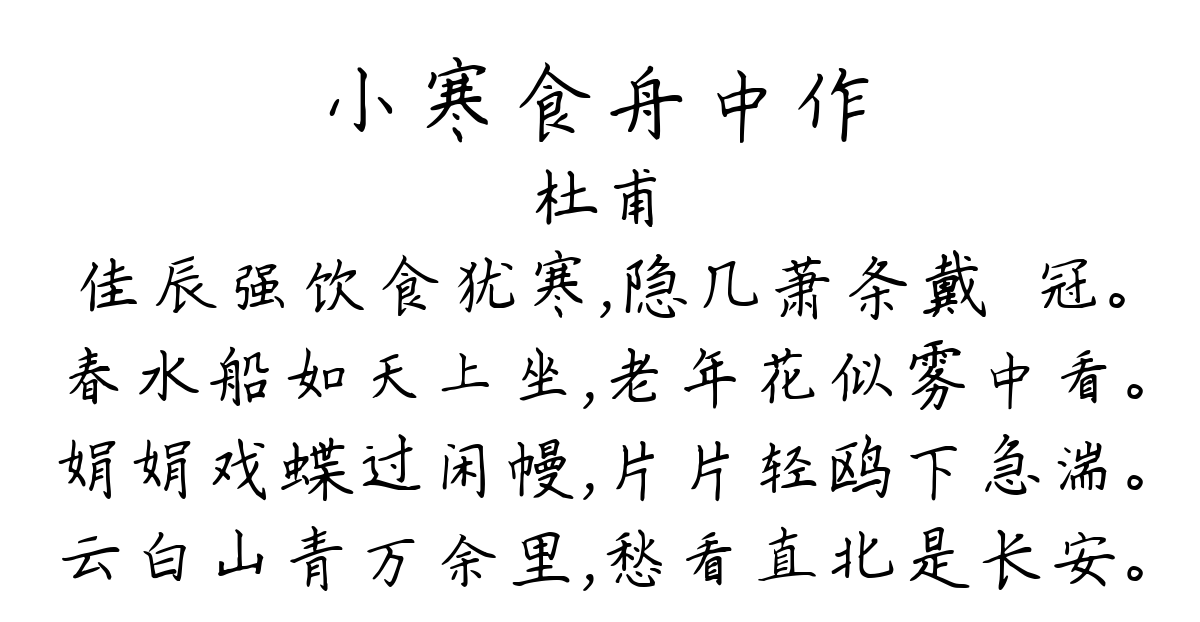 小寒食舟中作
杜甫
佳辰强饮食犹寒,隐几萧条戴 冠。
春水船如天上坐,老年花似雾中看。
娟娟戏蝶过闲幔,片片轻鸥下急湍。
云白山青万余里,愁看直北是长安。